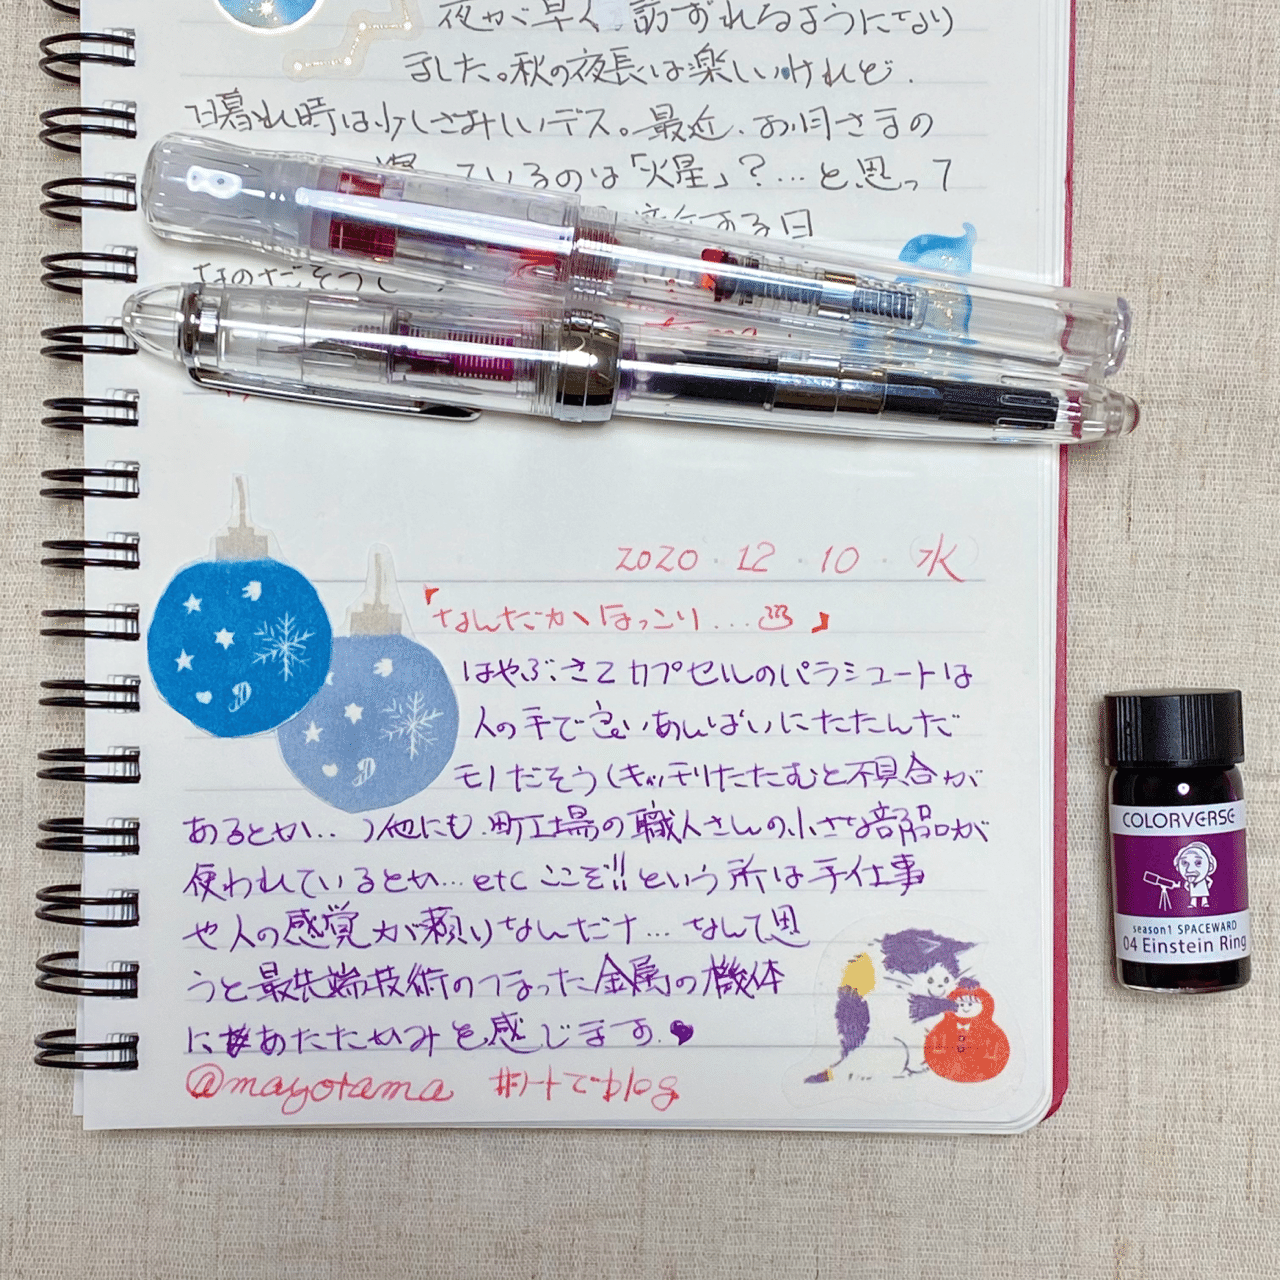 夜が早く訪ずれるようになり
ました。秋の夜長は楽しいけれど.
日暮れ時は少しさみしいデス。最近、お月さまの
ているのは「火星」?…と思って
する日
なのだそうで
2020.12.10.水
「なんだかほっこり…♨」
はやぶさ2カプセルのパラシュートは
人の手で良いあんばいにたたんだ
モノだそう(キッチリたたむと不具合が
あるとか…)他にも、町工場の職人さんの小さな部品が
使われているとか…etc ここぞ!!という所は手仕事
や人の感覚が頼りなんだナ…なんて思
うと最先端技術のつまった金属の機体
にもあたたかみを感じます.♥
@mayotama #ノートでblog
COLORVERSE
season1 SPACEWARD
04 Einstein Ring